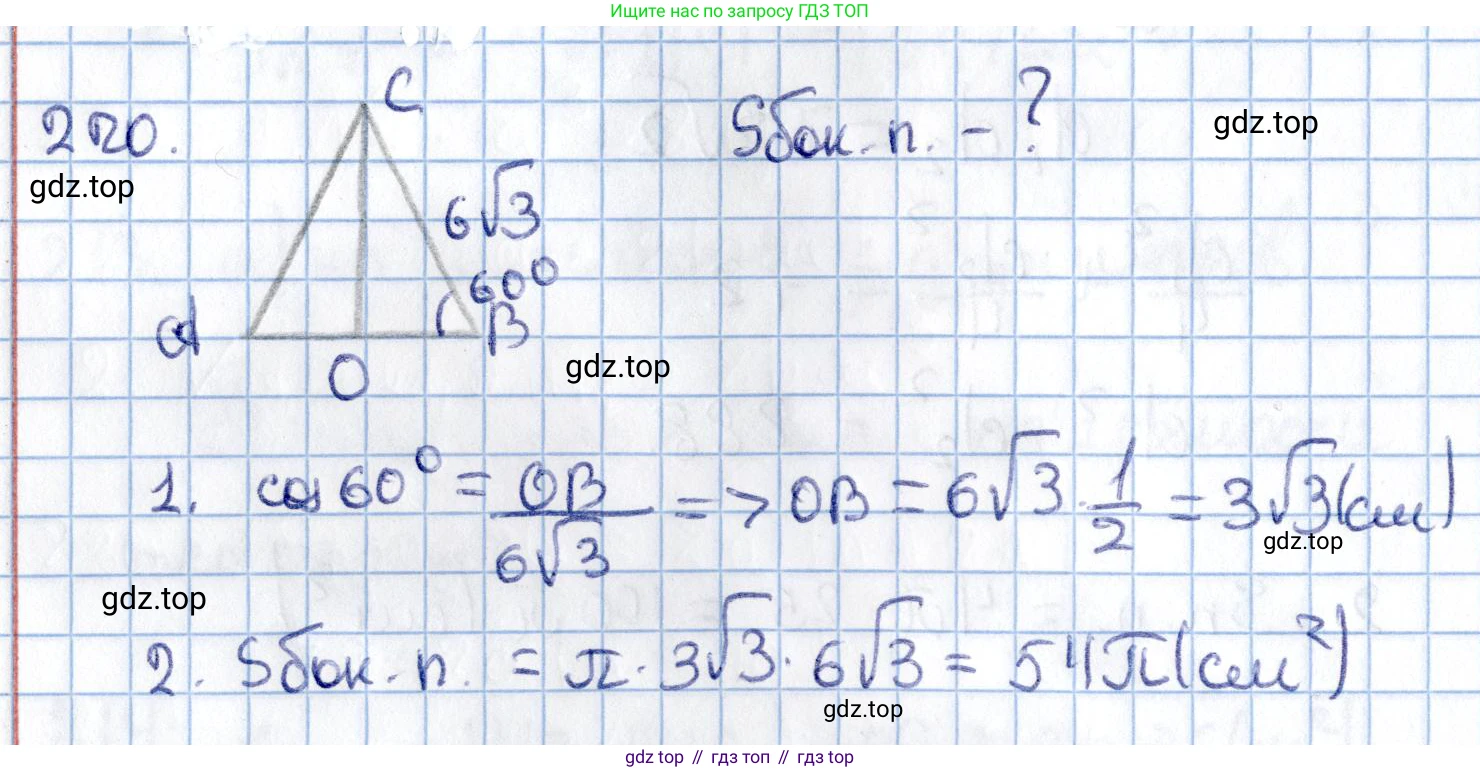 Ищите нас по запросу ГДЗ ТОП
220.
gdz.top
C
6√3
60°
A
B
O
Sбок. п. - ?
gdz.top
gdz.top
1. cos 60° = OB/6√3 => OB = 6√3 · 1/2 = 3√3 (см)
gdz.top
gdz.top
2. Sбок. п. = π · 3√3 · 6√3 = 54π (см²)
gdz.top
gdz top // гдз топ // гдз top